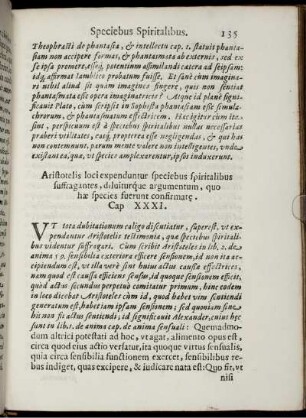 Speciebus Spiritalibus. 135
Theophrasti de phantasia, & intellectu cap. 1. statuit phanta-
siam non accipere formas, & phantasmata ab externis, sed ex
se ipsa premere, potentium assimilandi catera ad seipsam;
idq. affirmat Iamblico probatum fuisse. Et sanè cum imagina-
ri nihil aliud sit quam imagines fingere, quis non sentiat
phantasmata eius opera imaginatrice? Atque id planè signi-
ficauit Plato, cum scripsit in Sophista phantasiam esse simula-
chrorum, & phantasmatum effectricem. Hæc igitur cum ita
sint, perspicuum est à speciebus spiritalibus nullas necessarias
præberi vtilitates, easq. propterea esse negligendas, & qui has
non contemnunt, merito palere vim intellectiuam, vnde
existant ea, quæ, vt species amplexarentur, ipsos induxerunt.
Aristotelis loci expenduntur speciebus spiritalibus
suffragantes, diluiturque argumentum, quo
hæ species fuerunt confirmatę.
Cap XXXI.
VT tota dubitationum caligo discutiatur, superest, vt ex-
pendantur Aristotelis testimonia, quæ speciebus spiritali-
bus videntur suffragari. Cum scribit Aristoteles in lib. 2. de
anima 59. sensibilia exteriora efficere sensionem, id non ita ac-
cipiendum est, vt illa verè sint huius actus causæ effectrices,
nam quod sint causæ eiusdem sensionis efficientes, id quidem efficit,
quòd actus secundus perpetuò comitatur primum, hanc eodem
in loco dicebat Aristoteles cùm id, quod habet vim sentiendi
generatum est, habet iam ipsam sensionem; sed quoniam sensi-
bis non fit actus sentiendi; id significauit Alexander, cuius hæc
sunt in lib. 1. de anima cap. de anima sensuali: Quemadmo-
dum altrici potestati ad hoc, vt agat, alimento opus est,
circa quod eius actio versatur, ita quoque virtus sensualis,
quia circa sensibilia functionem exercet, sensibilibus re-
bus indiget, quas excipere, & iudicare nata est: Quo fit, vt
nisi